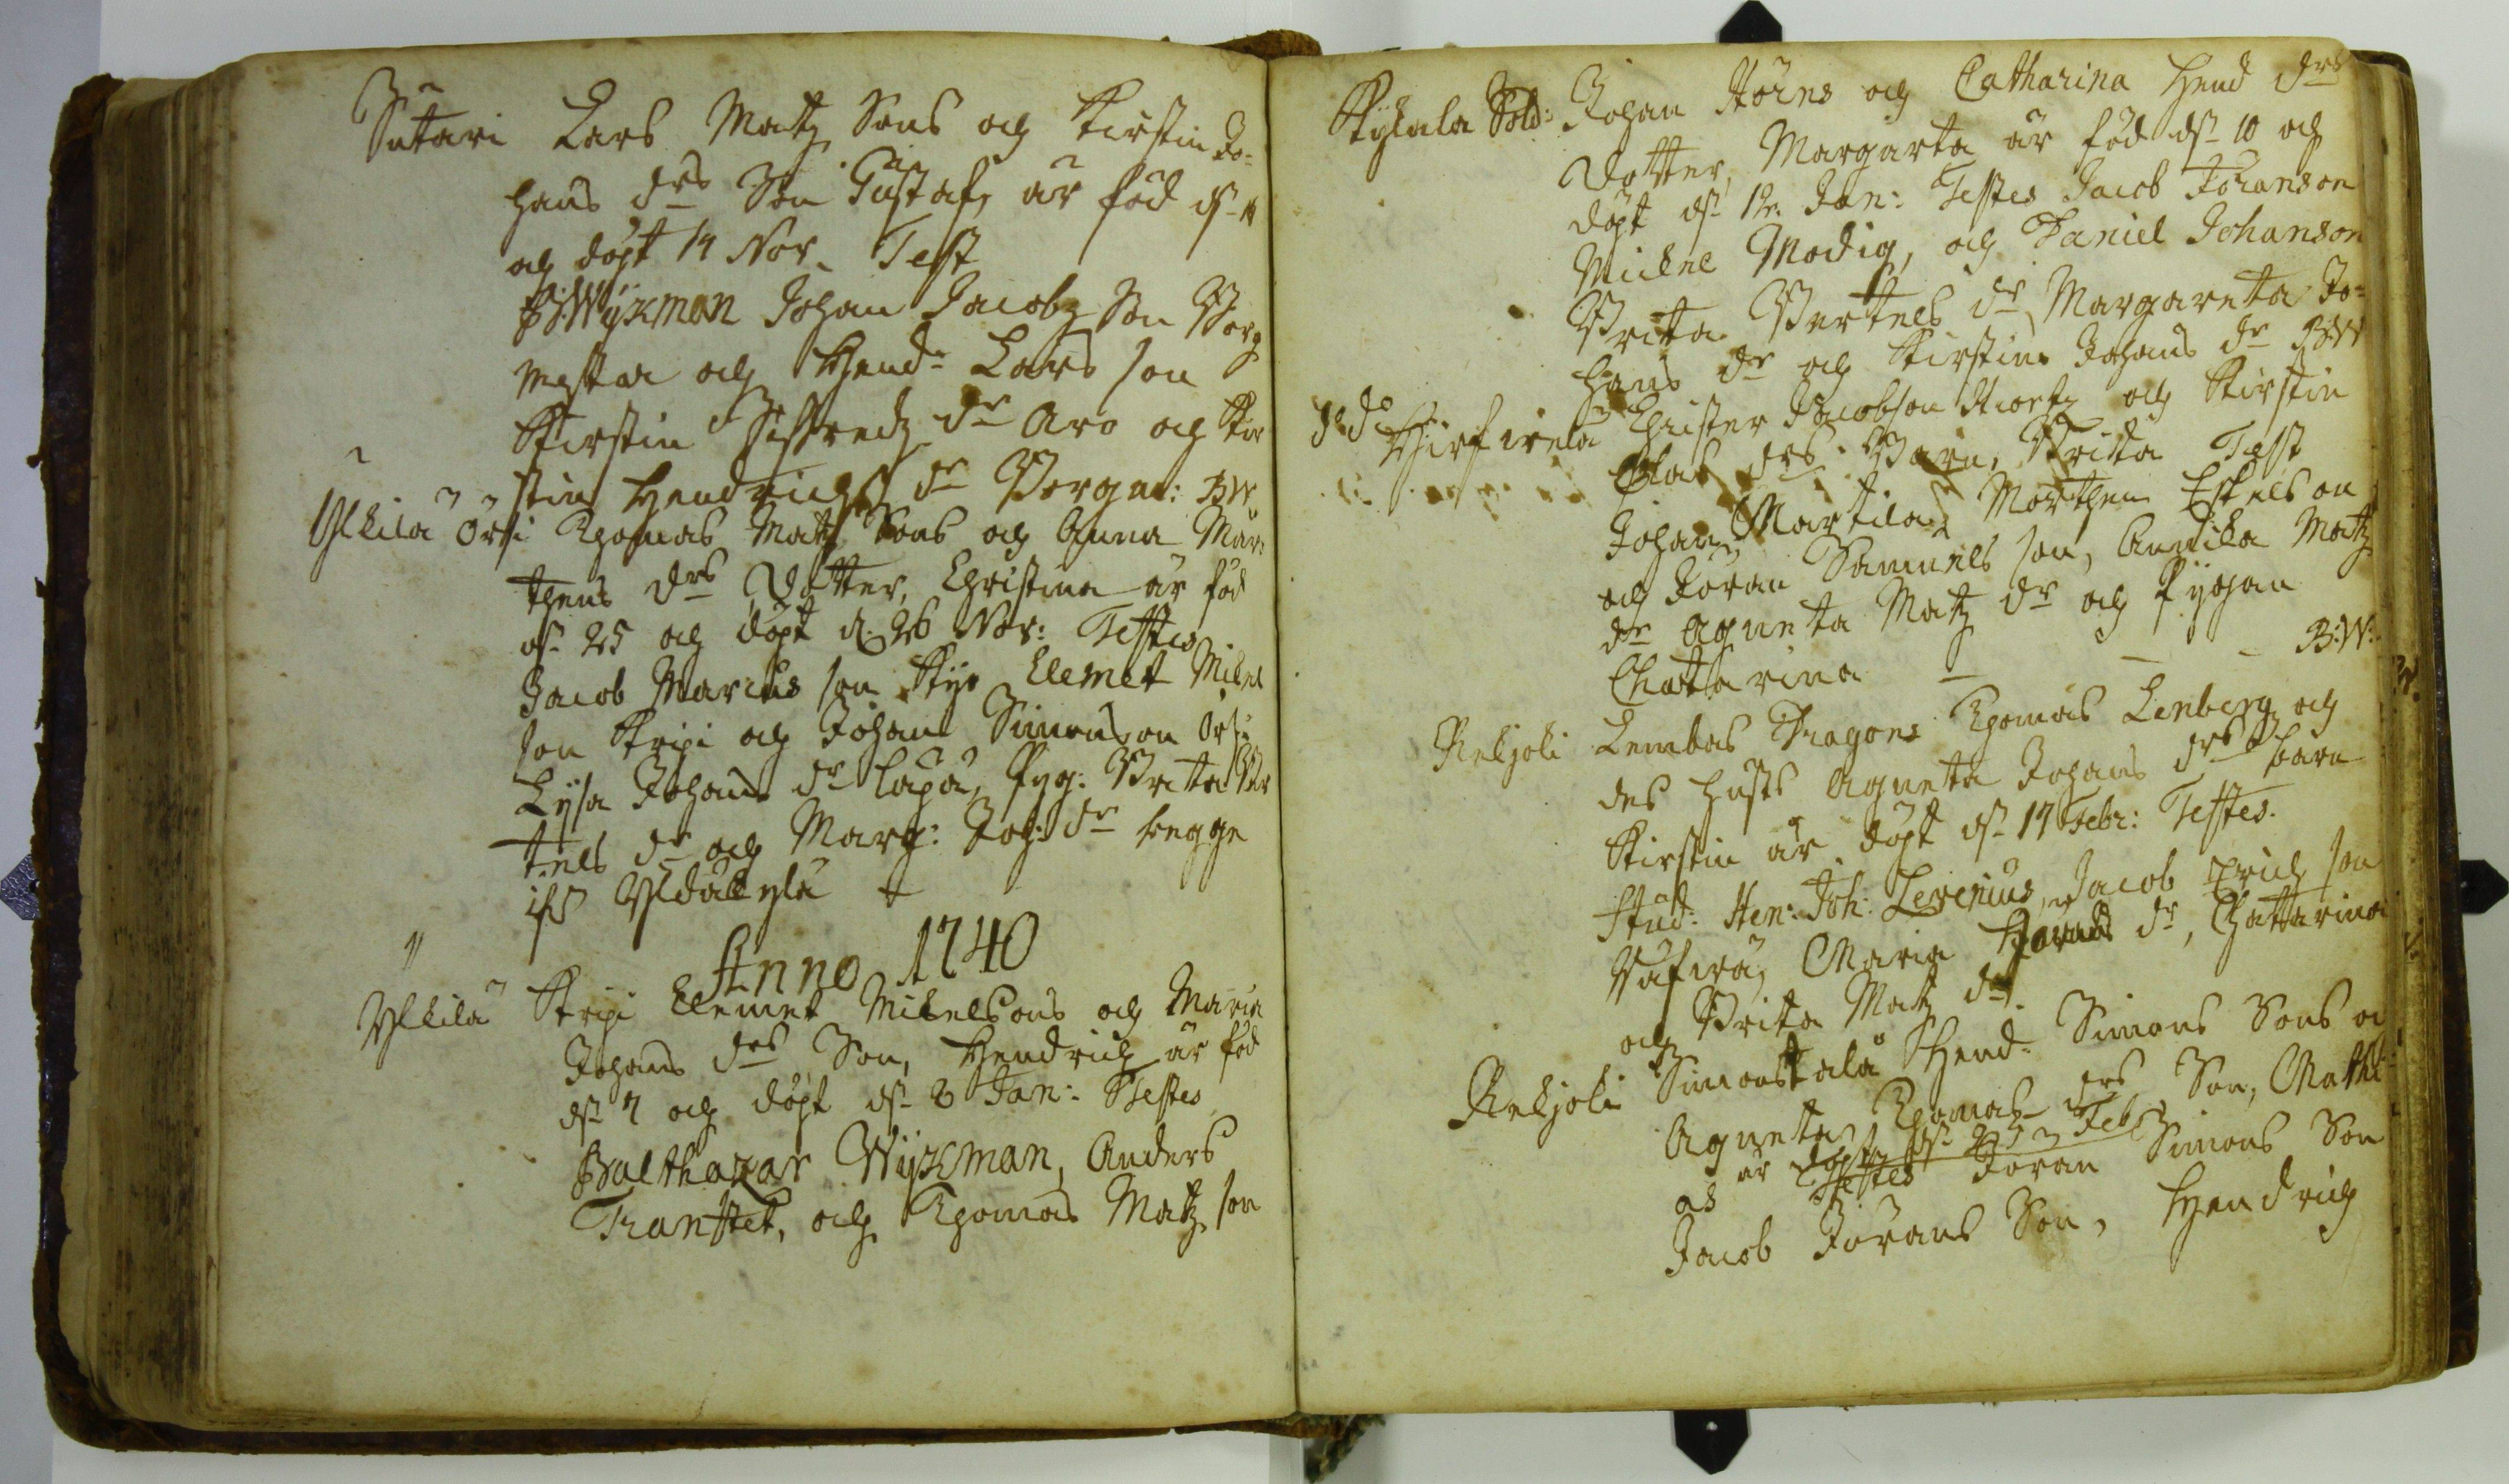 Sutari Lars Matz Sons och Kirstin Jo-
hans drs Son Gustaf, är född d. 11
och döpt 14 Nov. Test
B. Wijkman Johan Jacobz Son Borg
mestar och Hend: Lars son
Kirstin Sisfredz dr Aro och Kir
stin Hendrichs dr Borgm: BW
Ylkilä Orsi Thomas Matz Sons och Anna Mår-
thens drs Dotter, Christina är föd
d. 25 och döpt d. 26 Nov: Testes
Jacob Marcus son Kyr Clemet Mikel
son Kripi och Johan Simonson Orsi
Lysa Johans dr Lapa, Pyg: Brita Ber
tels dr och Marg: Joh: dr begge
ifr
Anno 1740
Ylkilä Kripi Clemet Mikelsons och Maria
Johans drs Son, Hendrich är föd
d. 7 och döpt d. 8 Jan: Testes
Balthazar Wijkman, Anders
Transtet, och Thomas Matz son
Kykala Sold: Johan Hörns och Catharina Hend drs
Dotter, Margarta är föd d. 10 och
döpt d. 12. Jan: Testes Jacob Johanson
Mickel Modig, och Daniel Johanson
Brita Bertels dr, Margareta Jo-
hans dr och Kirstin Johans dr B:W
Hirfirela Christer Jacobson och Kirstin
Olas drs Barn, Brita Test
Johan Martila, Morthen Eskelson
och Jöran Samuels son, Annika Matz
dr Agneta Matz dr och Pygan
Chatarina — — — B:W:
Rekjoki Lembas Dragons Thomas Lenberg och
des hust: Agneta Johans drs barn
Kirstin är döpt d. 17 Febr: Testes.
Stud: Hen: Joh: Levenius, Jacob Erich son
Maria dr, Chattarina
och Brita Matz dr.
Rekjoki Simonstalå Hend: Simons Sons oc
Agneta Thomas drs Son, Mathi
as är döpt d. 25 Feb
Testes Jöran Simons Son
Jacob Jörans Son, Hendrich